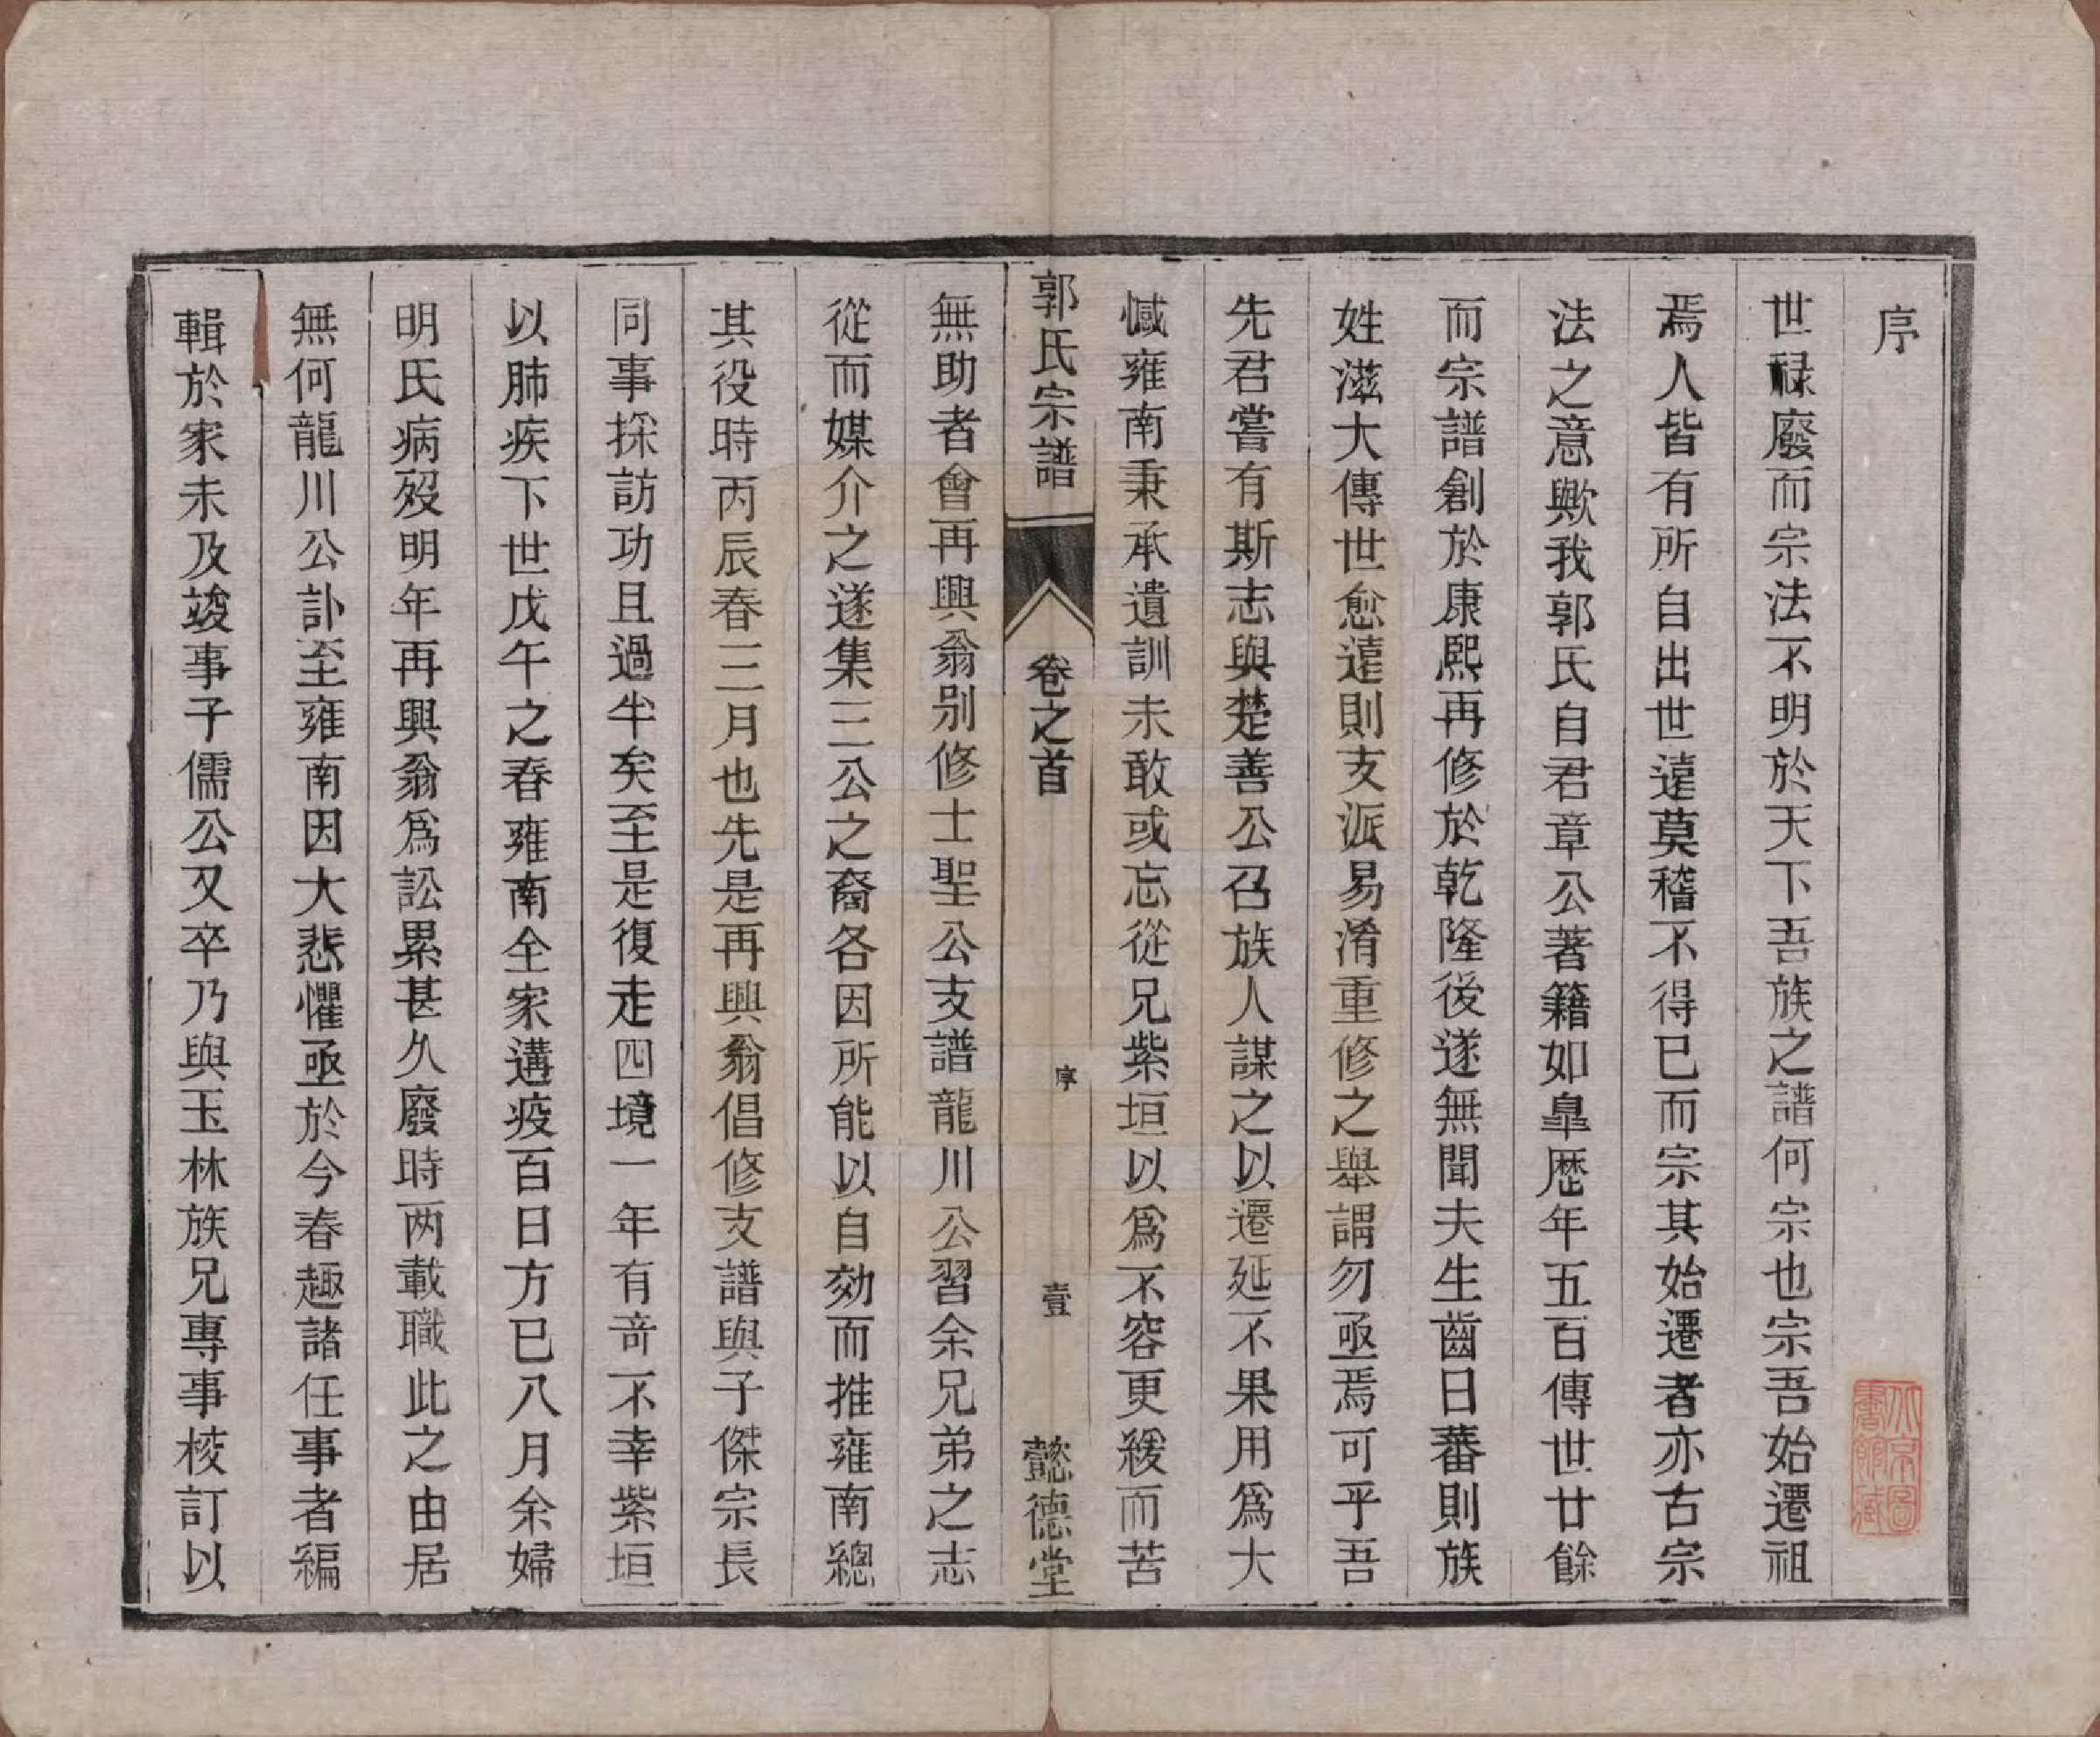 序
世祿廢而宗法不明於天下吾族之譜何宗也宗吾始遷祖
焉人皆有所自出世遠莫稽不得已而宗其始遷者亦古宗
法之意歟我郭氏自君章公著籍如臯歷年五百傳世廿餘
而宗譜創於康熙再修於乾隆後遂無聞夫生齒日蕃則族
姓滋大傳世愈遠則支派易淆重修之舉謂勿亟焉可乎吾
先君嘗有斯志與楚善公召族人謀之以遷延不果用爲大
憾雍南秉承遺訓未敢或忘從兄紫垣以爲不容更緩而苦
郭氏宗譜
卷之首
序
壹
懿德堂
無助者會再興翁別修士聖公支譜龍川公習余兄弟之志
從而媒介之遂集三公之裔各因所能以自効而推雍南總
其役時丙辰春三月也先是再興翁倡修支譜與子傑宗長
同事採訪功且過半矣至是復走四境一年有奇不幸紫垣
以肺疾下世戊午之春雍南全家遘疫百日方已八月余婦
明氏病歿明年再興翁爲訟累甚久廢時两載職此之由居
無何龍川公訃至雍南因大悲懼亟於今春趣諸任事者編
輯於家未及竣事子儒公又卒乃與玉林族兄專事校訂以
北京圖
書館藏